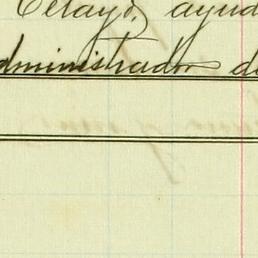 Celayo, ayud
dministrador d